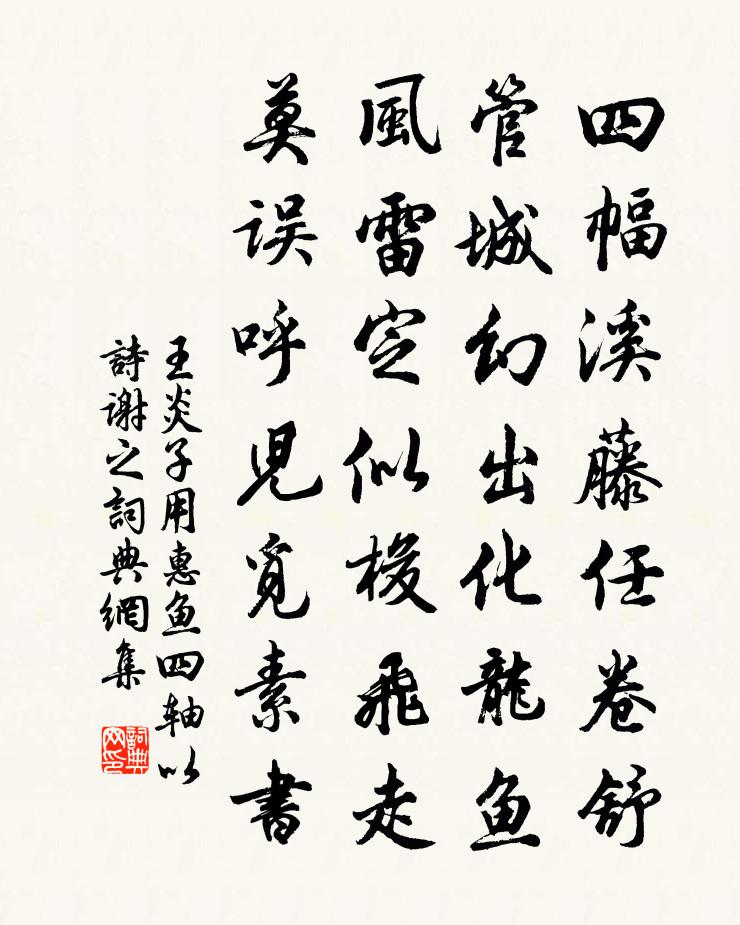 四幅溪藤任卷舒
管城幻出化龍鱼
風雷定似梭飛走
莫误呼児覓素書
王炎子用惠鱼四轴以
詩谢之詞典網集
詞典
网印